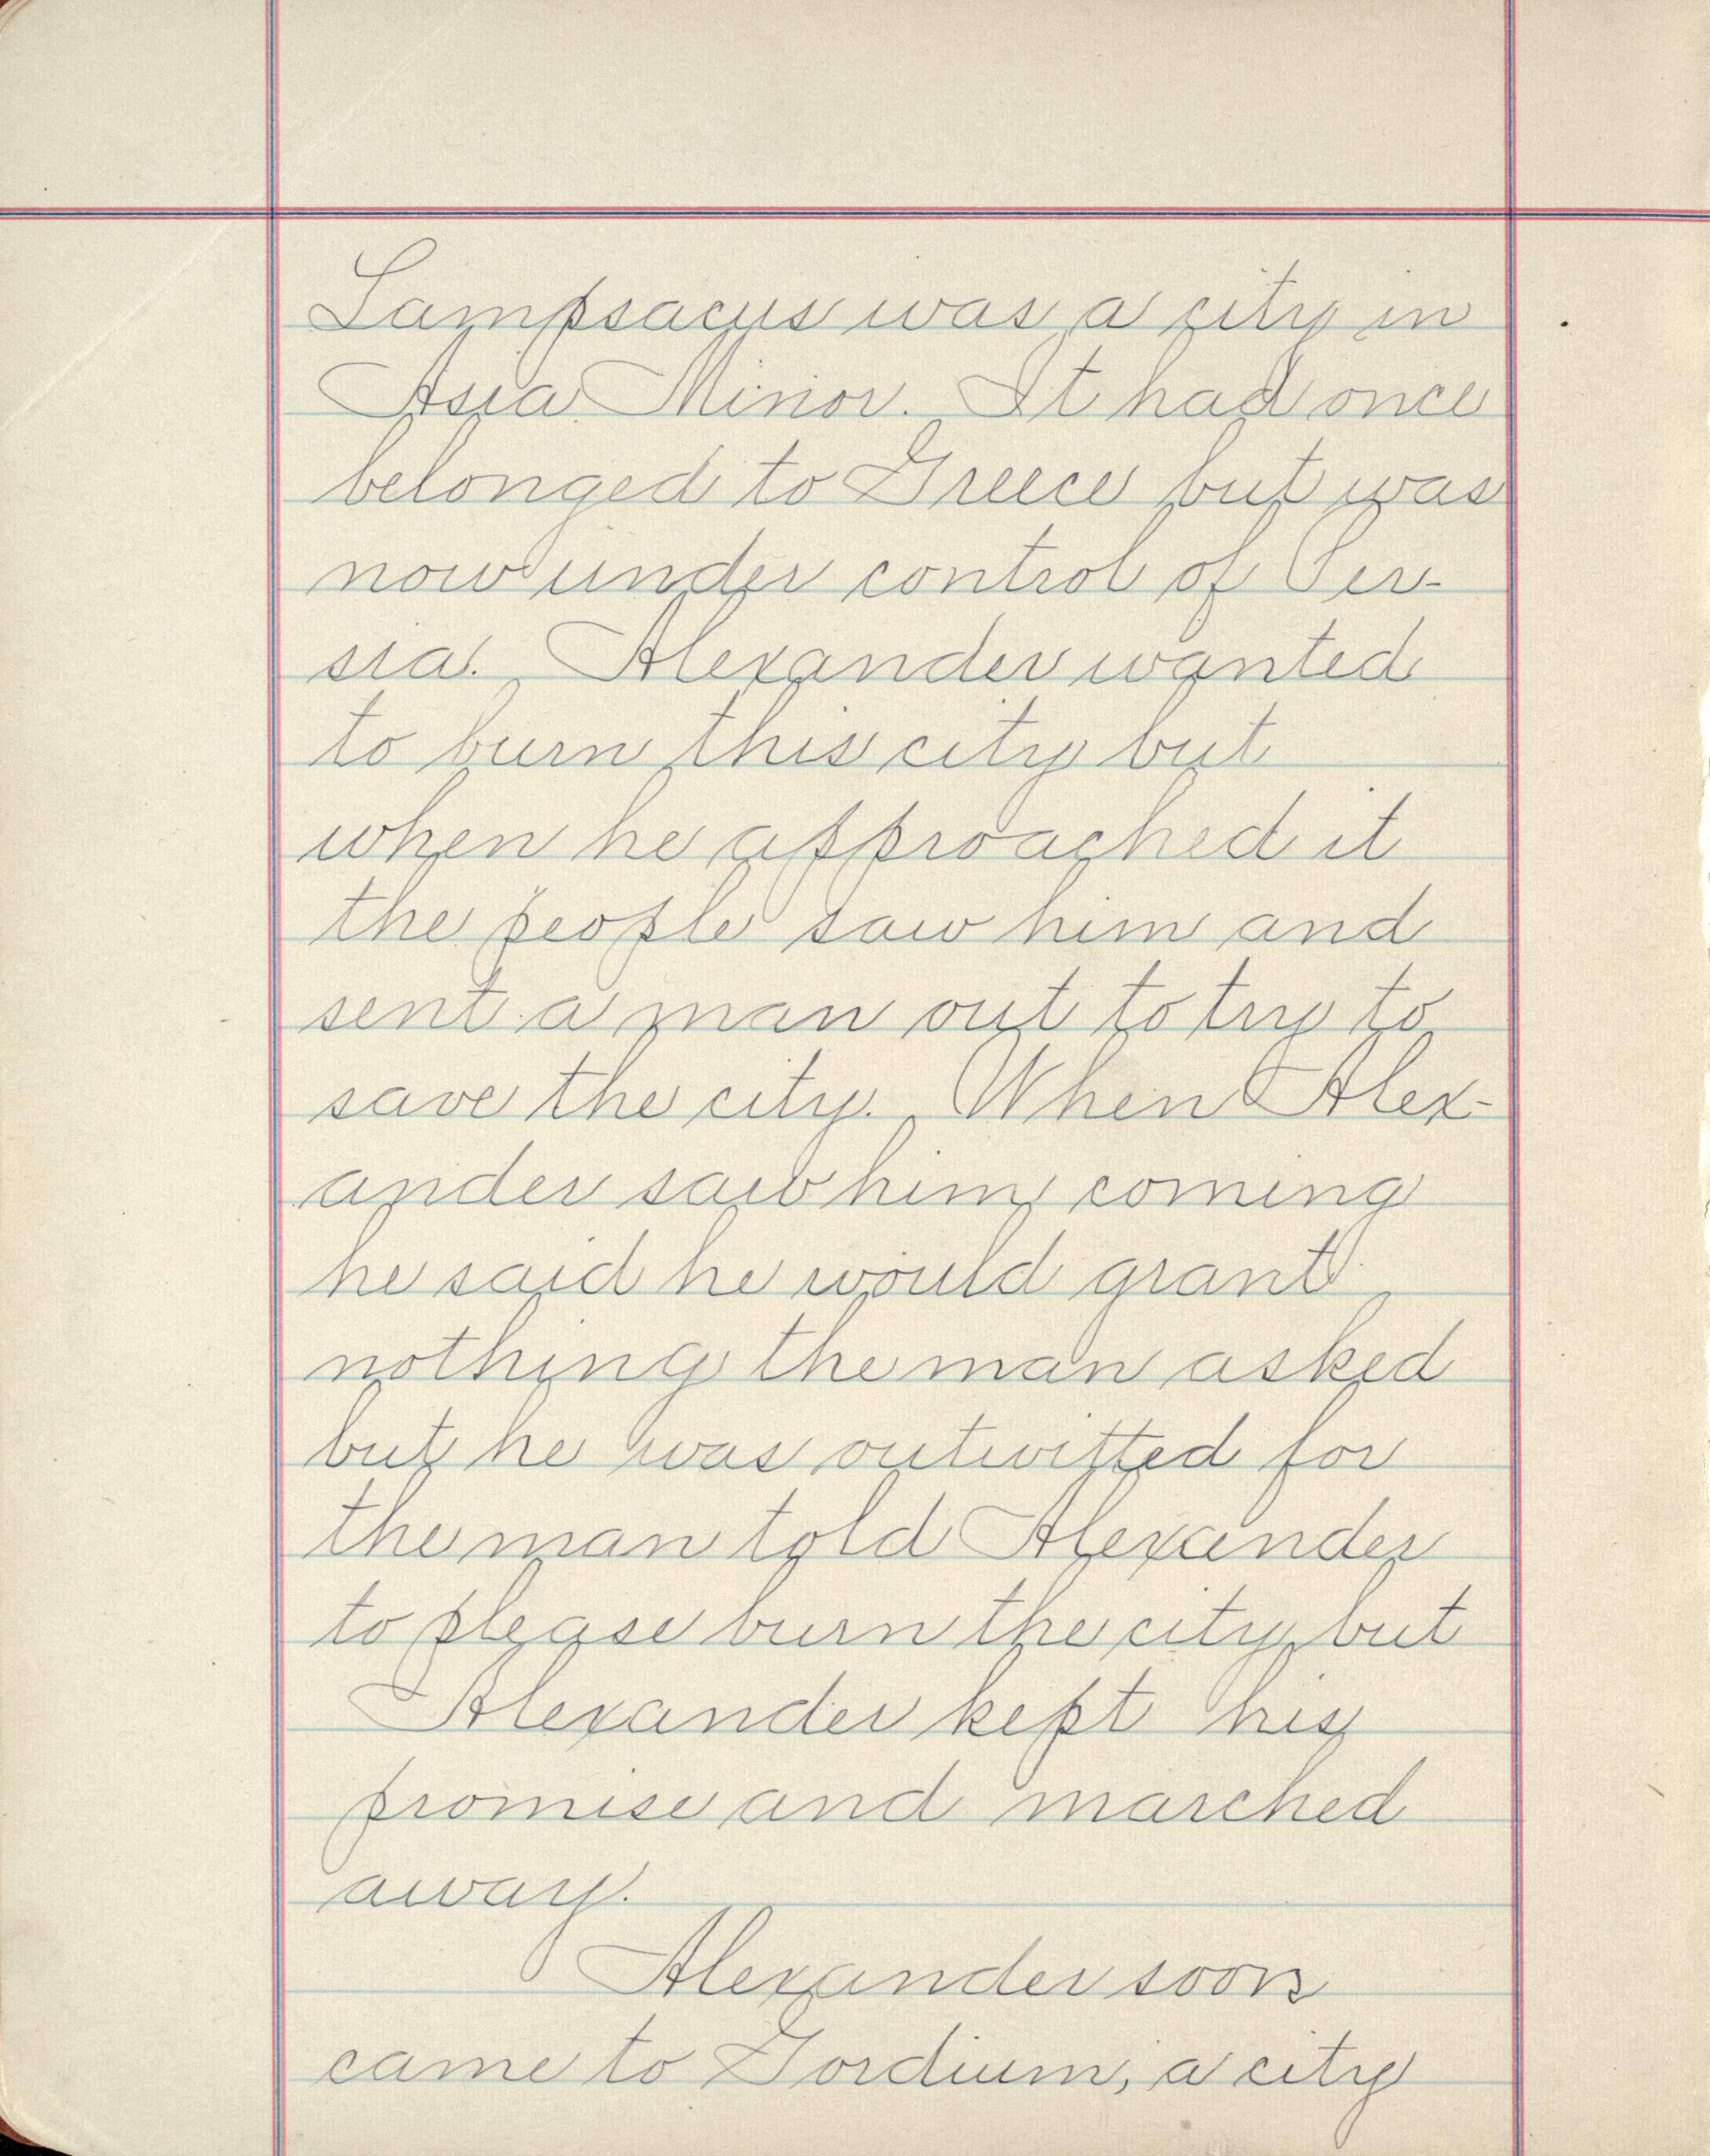 Lampsacus was a city in
Asia Minor. It had once
belonged to Greece but was
now under control of Per-
sia. Alexander wanted
to burn this city but
when he approached it
the people saw him and
sent a man out to try to
save the city. When Alex-
ander saw him coming
he said he would grant
nothing the man asked
but he was outwitted for
the man told Alexander
to please burn the city but
Alexander kept his
promise and marched
away.
Alexander soon
came to Gordium, a city